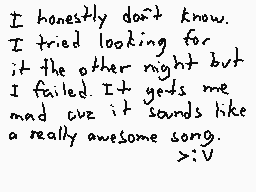 I honestly don't know.
I tried looking for
it the other night but
I failed. It gets me
mad cuz it sounds like
a really awesome song.
>:V